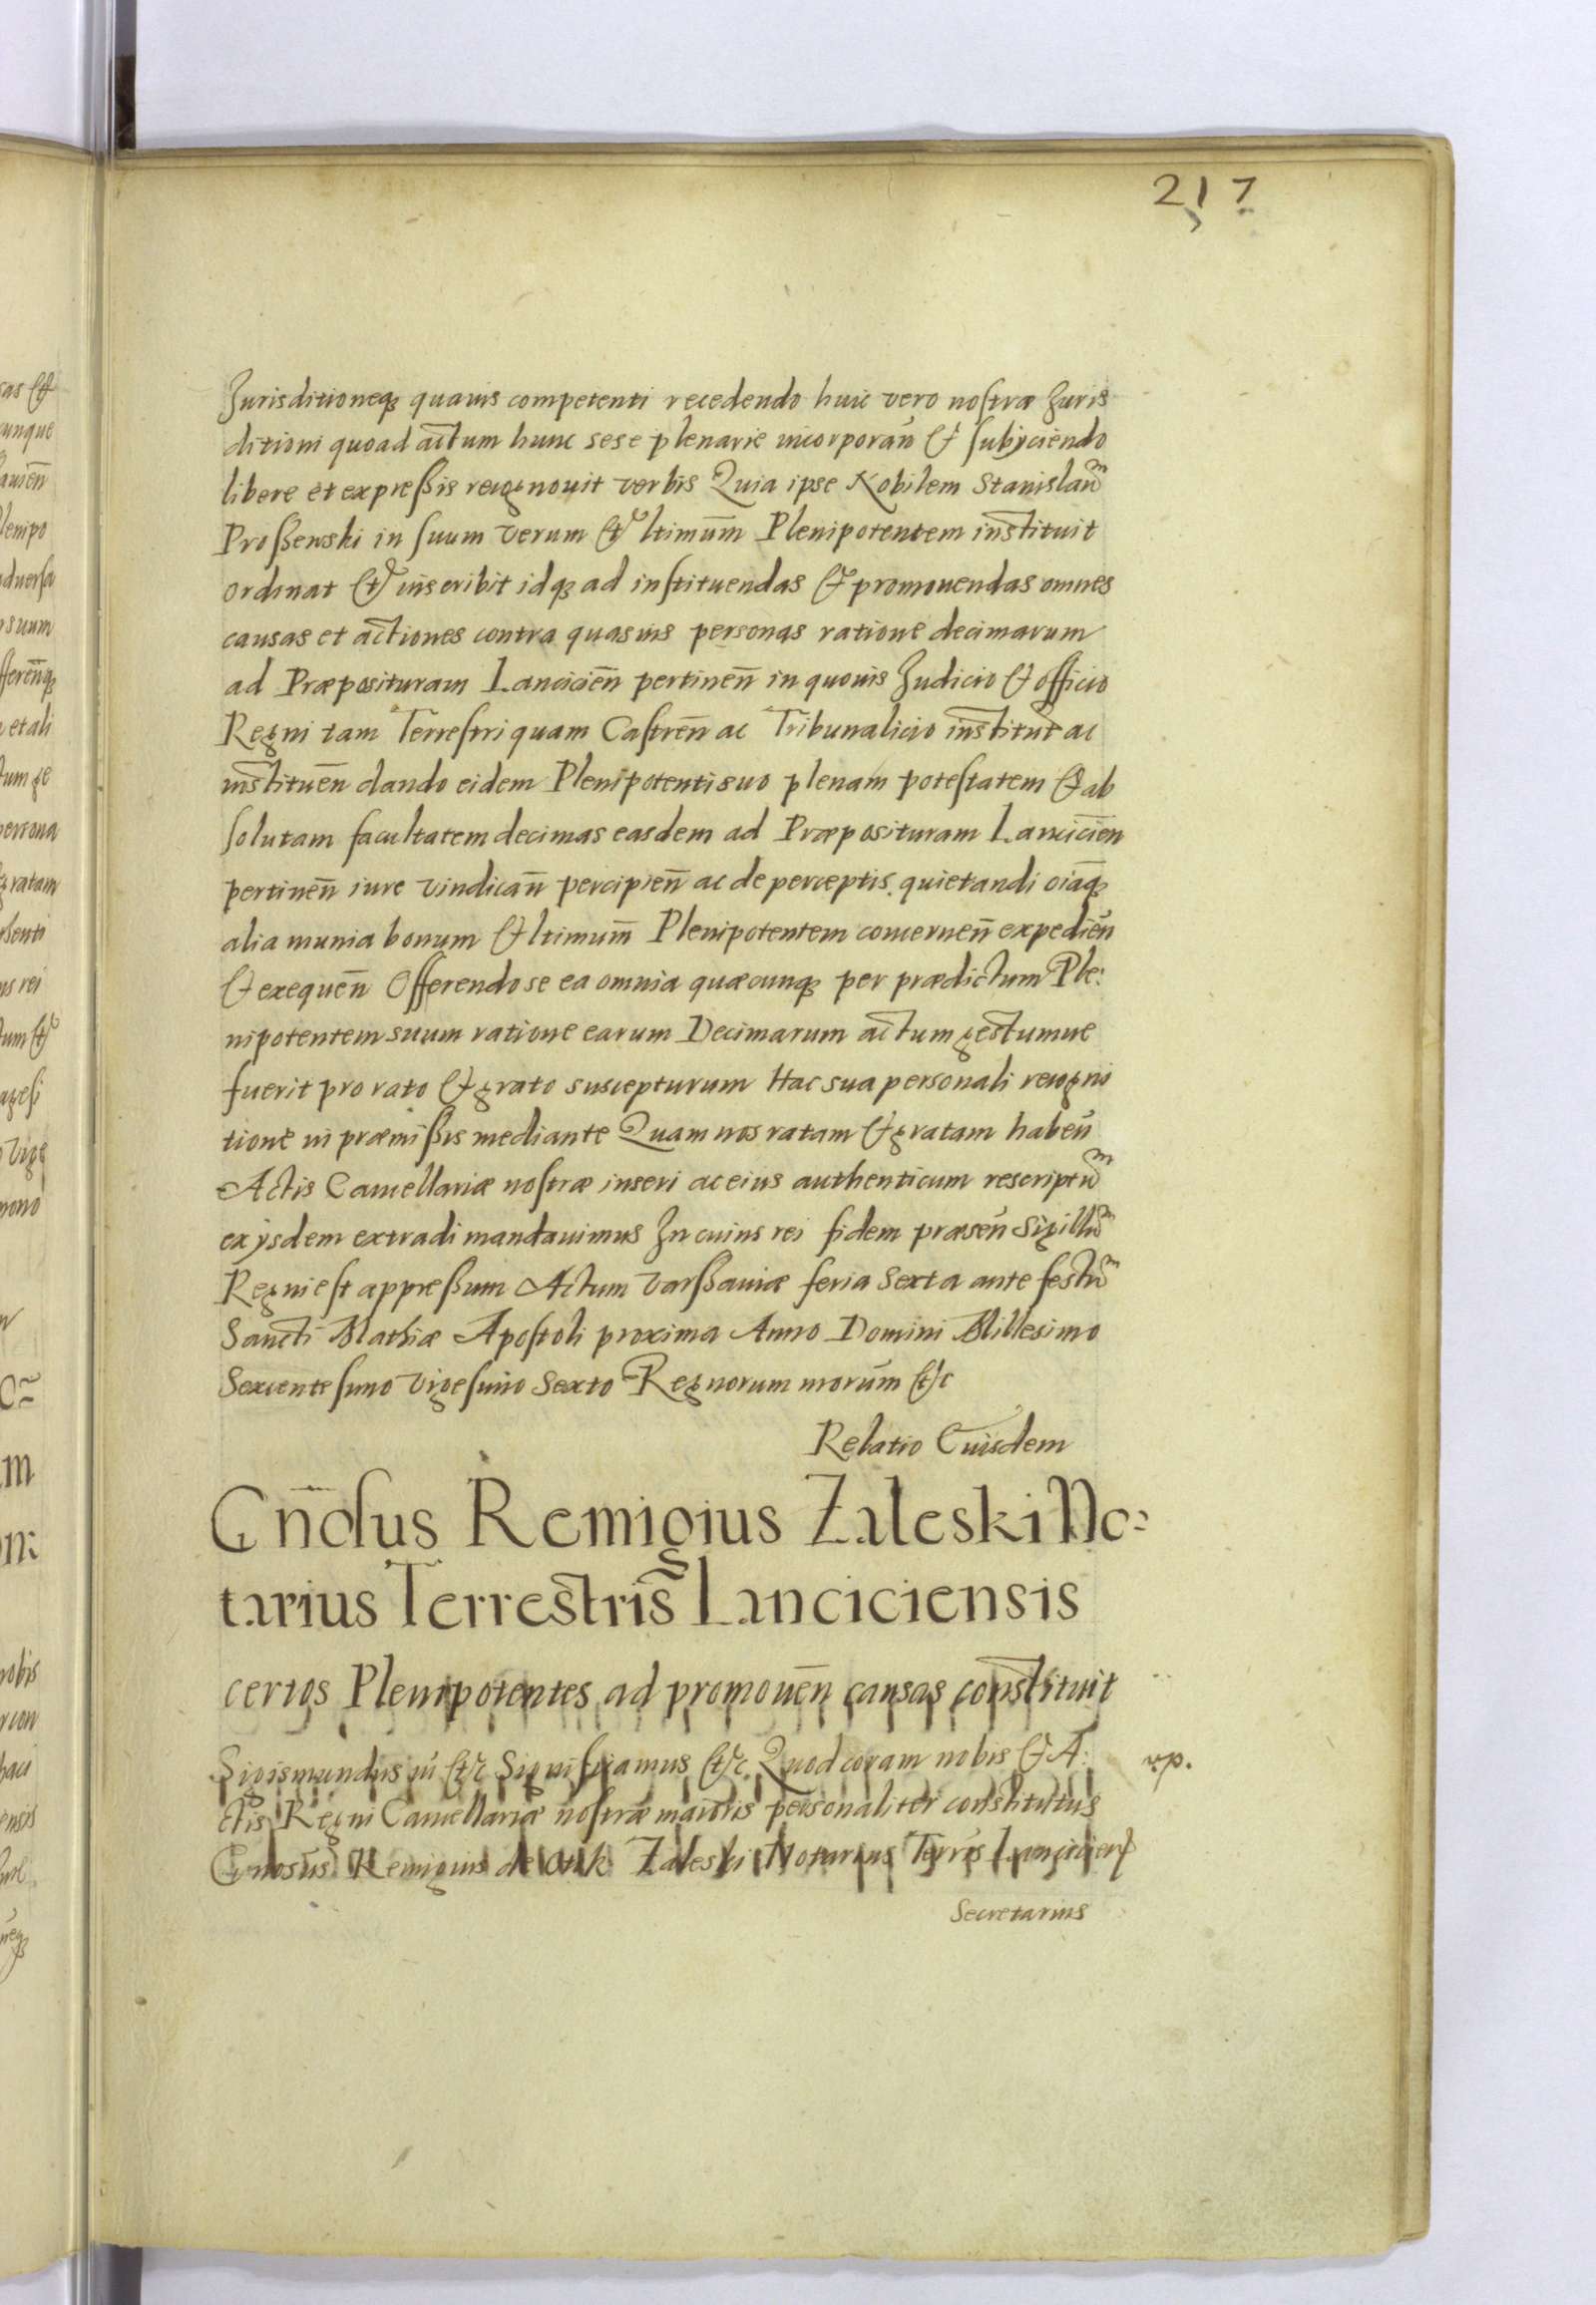 217
Jurisditioneq3 quauis competenti recedendo huic vero nostræ Juris
ditioni quoad actum hunc sese plenarie incorporan̄ Et subijciendo
libere et expreßis recognouit verbis Quia ipse Nobilem Stanislaūm
Proßewski in suum verum Et ltimum̄ Plenipotentem instituit
ordinat Et inscribit idq3 ad instituendas Et promouendas omnes
causas et actiones contra quasuis personas ratione decimarum
ad Præposituram Lancicien̄ pertinen̄ in quouis Judicio Et officio
Regni tam Terrestri quam Castren̄ ac Tribunalicio institut̄ ac
instituen̄ dando eidem Plenipotenti suo plenam potestatem Et ab
solutam facultatem decimas easdem ad Præposituram Lancicien̄
pertinen̄ iure vindican̄ percipien̄ ac de perceptis quietandi oiaq̄3
alia munia bonum Et ltimum̄ Plenipotentem concernen̄ expedien̄
Et exequen̄ Offerendo se ea omnia quæcunq3 per prædictum Ple:
nipotentem suum ratione earum Decimarum actum gestumue
fuerit pro rato Et grato suscepturum Hac sua personali recogni
tione in præmißis mediante Quam nos ratam Et gratam haben̄
Actis Cancellariæ nostræ inseri ac eius authenticum rescriptūm
ex ijsdem extradi mandauimus In cuius rei fidem præsen̄ Sigillūm
Regni est appreßum Actum Varßauiæ feria Sexta ante festūm
Sancti Mathiæ Apostoli proxima Anno Domini Millesimo
Sexcentesimo Vigesimo Sexto Regnorum nrorūm Etc
Relatio Euisdem
Gn̄dsus Remigius Zaleski No:
tarius Terrestris Lanciciensis
certos Plenipotentes ad promouen̄ causas constituit
Sigismundus iīi Etc Significamus Etc Quod coram nobis Et A:
ctis Regni Cancellariæ nostræ maioris personaliter constitutus
Gn̄osus Remigius de Zaleski Notarius Terris Lancicien̄
Secretarius